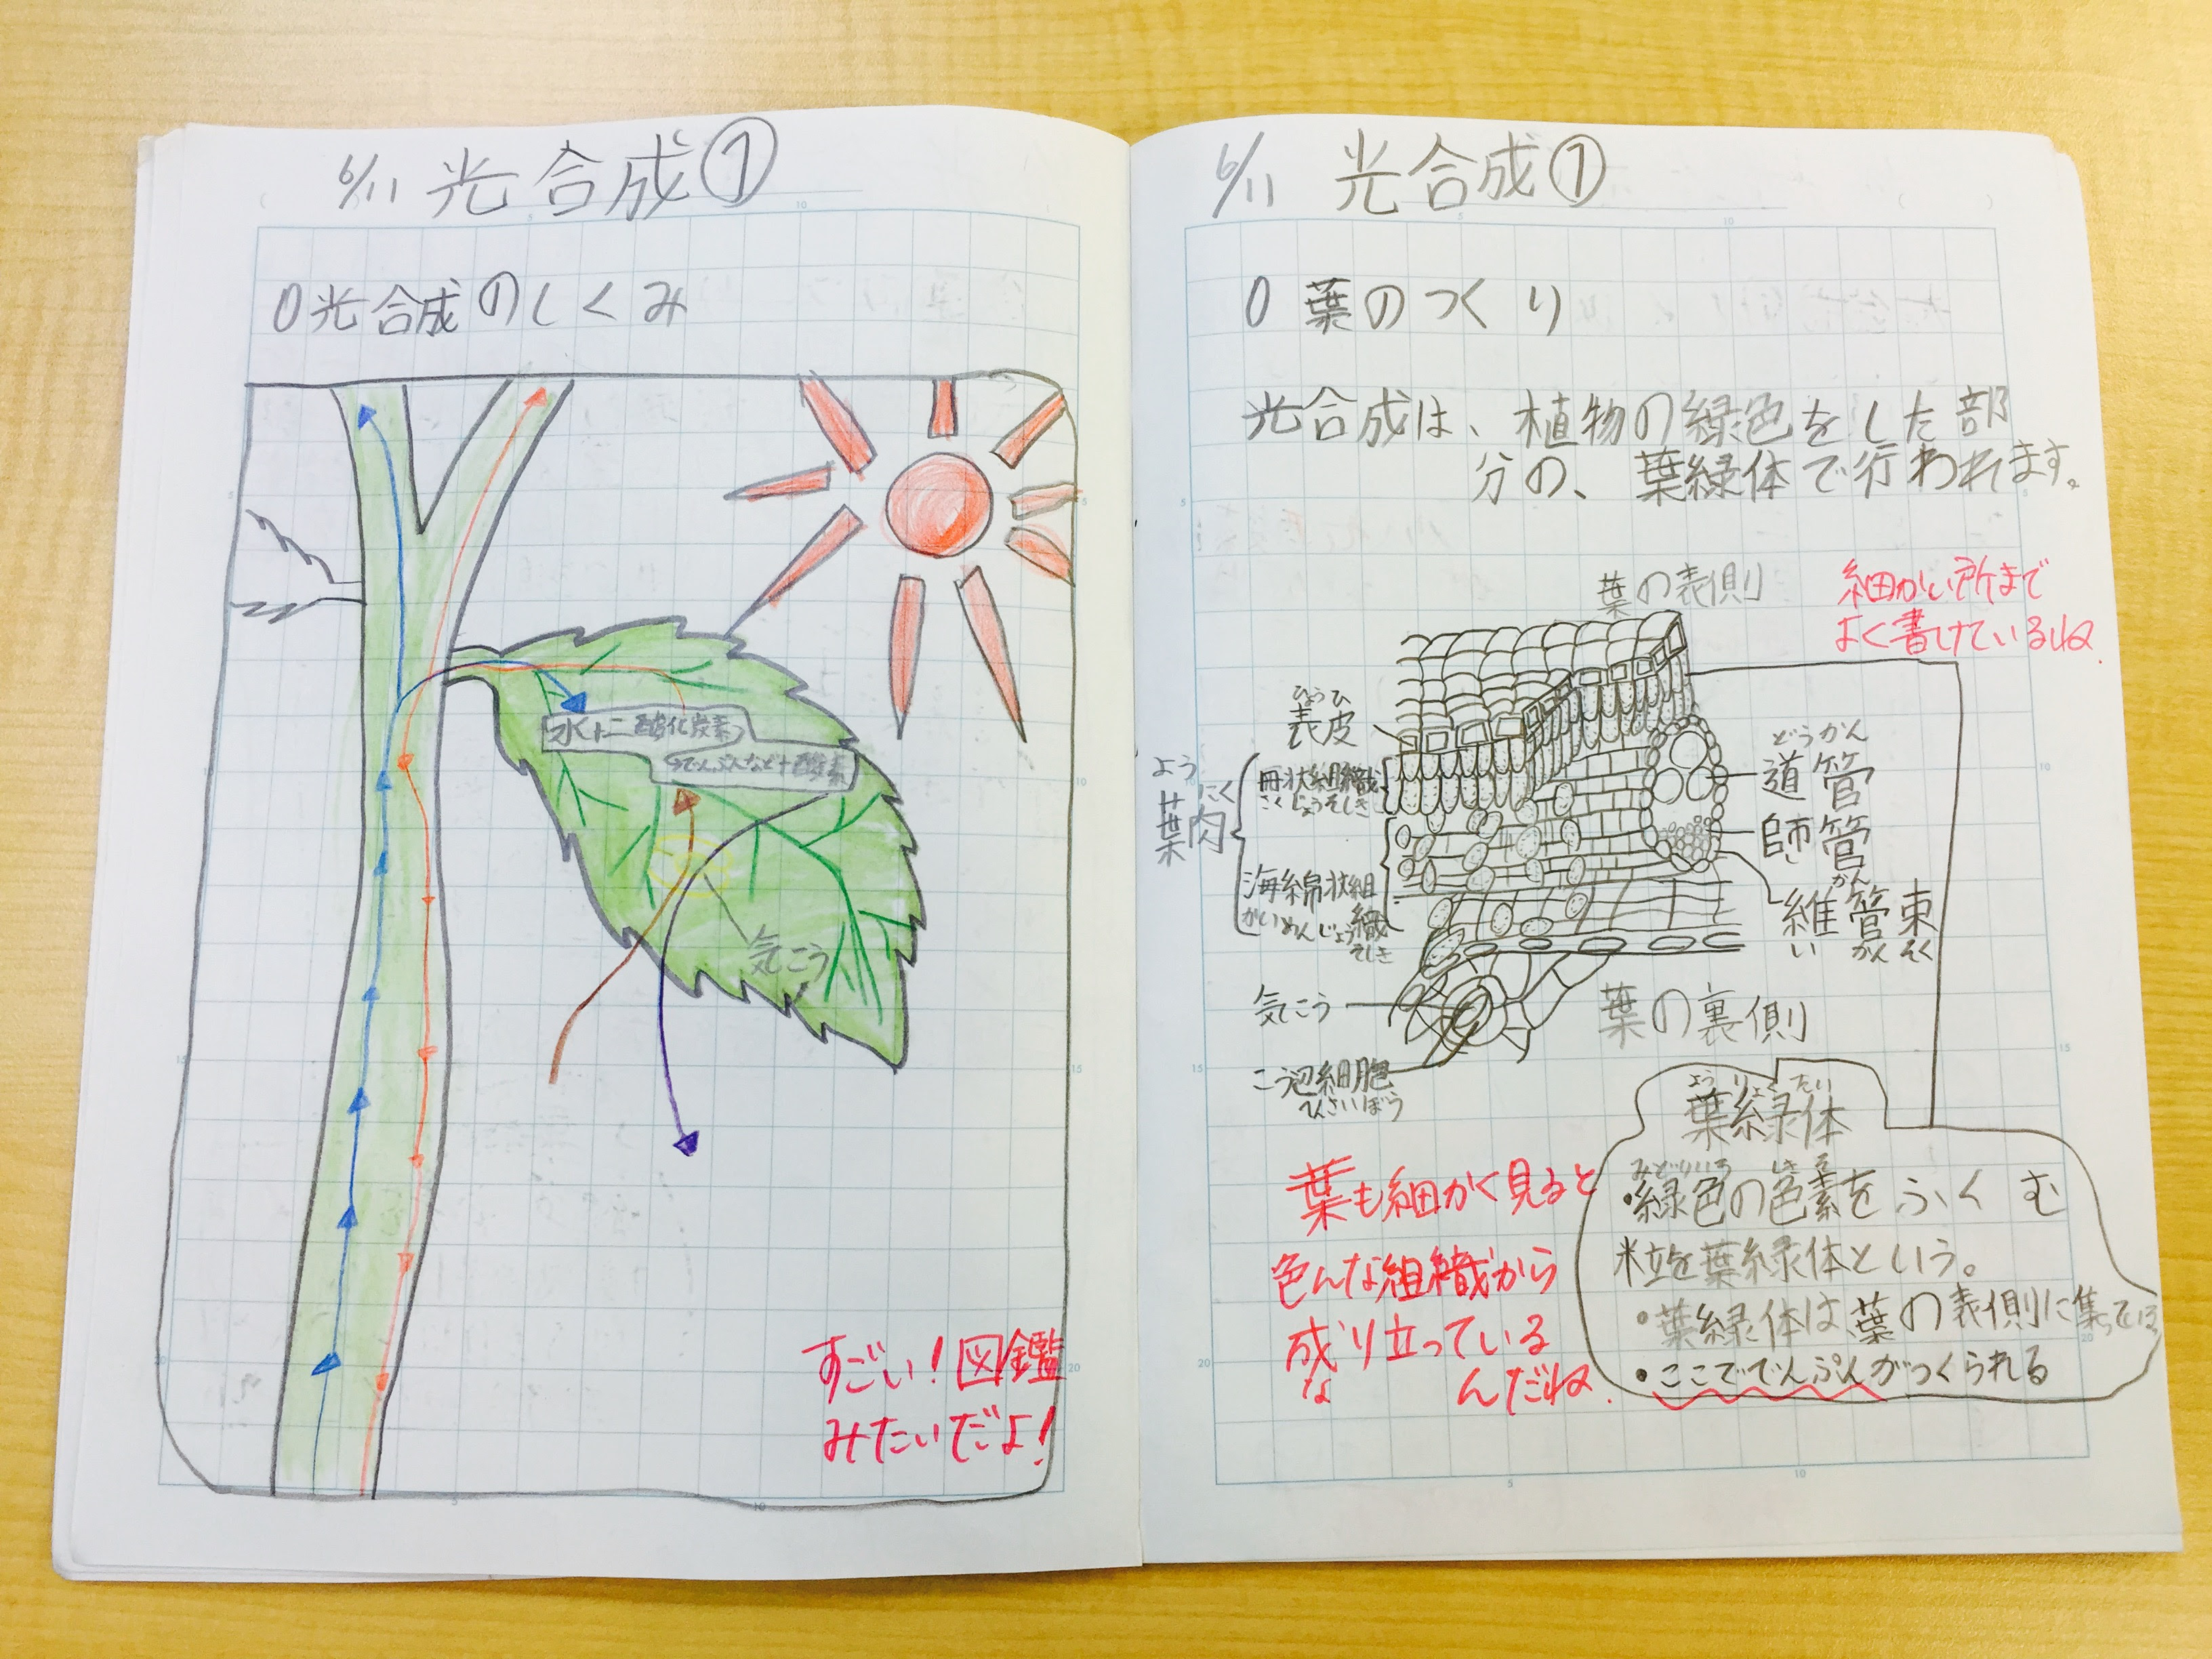 6/11 光合成①
○光合成のしくみ
水+二酸化炭素
→でんぷんなど+酸素
気こう
すごい!図鑑
みたいだよ!
6/11 光合成①
○葉のつくり
光合成は、植物の緑色をした部
分の、葉緑体で行われます。
葉の表側
細かい所まで
よく書けているね。
ひょうひ
表皮
ようにく
葉肉
冊状組織
さくじょうそしき
海綿状組
織
かいめんじょう
そしき
気こう
こう辺細胞
へんさいぼう
どうかん
道管
師管
かん
維管束
いかんそく
葉の裏側
ようりょくたい
葉緑体
みどりいろ しきそ
・緑色の色素をふくむ
粒を葉緑体という。
・葉緑体は、葉の表側に集っている
・ここででんぷんがつくられる
葉も細かく見ると
色んな組織から
成り立っている
な んだね。